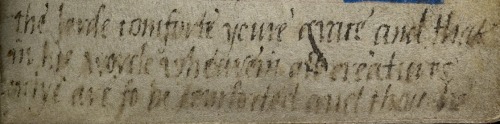 the lorde comforte youre grace and that
in his worde wherein all creatures
onlye are to be comforted and though he